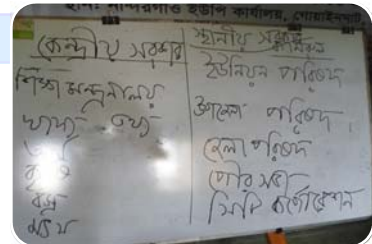 স্থান: নন্দিরগাঁও ইউপি কার্যালয়, গোয়াইনঘাট
কেন্দ্রীয় সরকার
শিক্ষা মন্ত্রনালয়
খাদ্য - তথ্য
কৃষি
বস্ত্র
স্থানীয় সরকার
ইউনিয়ন পরিষদ
উপজেলা পরিষদ
জেলা পরিষদ
পৌর সভা
সিটি কর্পোরেশন